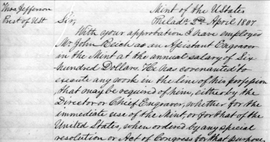 Thos Jefferson
Prest of US
Mint of the UStates
Philada 2d April 1807
Sir,
With your approbation I have employed
Mr John Reich as an Assistant Engraver
in the Mint at the annual salary of Six
hundred Dollars. He has covenanted to
execute any work in the line of his profession
that may be required of him, either by the
Director or Chief Engraver, whether for the
immediate use of the Mint, or for that of the
United States, when ordered by any special
resolution or Act of Congress for that purpose